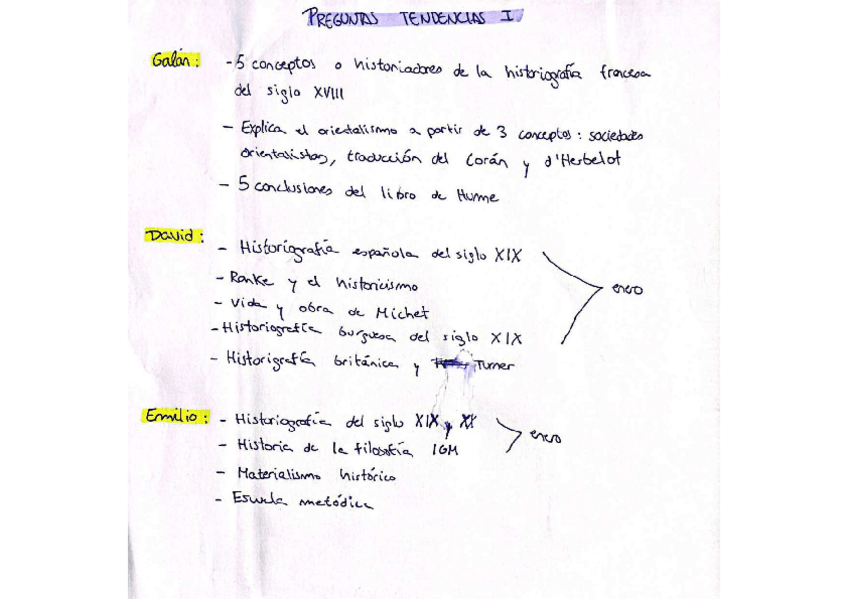 PREGUNTAS TENDENCIAS I
Galán: - 5 conceptos o historiadores de la historiografía francesa
del siglo XVIII
- Explica el orientalismo a partir de 3 conceptos: sociedades
orientalistas, traducción del Corán y d'Herbelot
- 5 conclusiones del libro de Hume
David: - Historiografía española del siglo XIX
- Ranke y el historicismo
- Vida y obra de Michet
- Historiografía burguesa del siglo XIX
- Historigrafía británica y Turner
enero
Emilio: - Historiografía del siglo XIX y XX
- Historia de la filosofía IGM
- Materialismo histórico
- Escuela metódica
enero